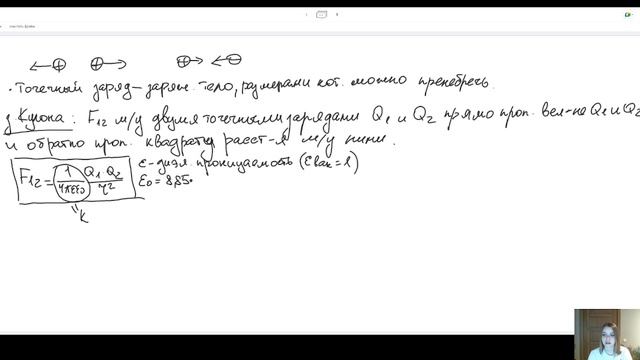 • Точечный заряд – заряж. тело, размерами кот. можно пренебречь.
з Кулона: F₁₂ м/у двумя точечными зарядами Q₁ и Q₂ прямо проп. вел-не Q₁ и Q₂
и обратно проп. квадрату расст-я м/у ними.
F₁₂ = 1/4πεε₀ Q₁·Q₂/r² ε – диэл. проницаемость (εвак = 1)
ε₀ = 8,85·
k